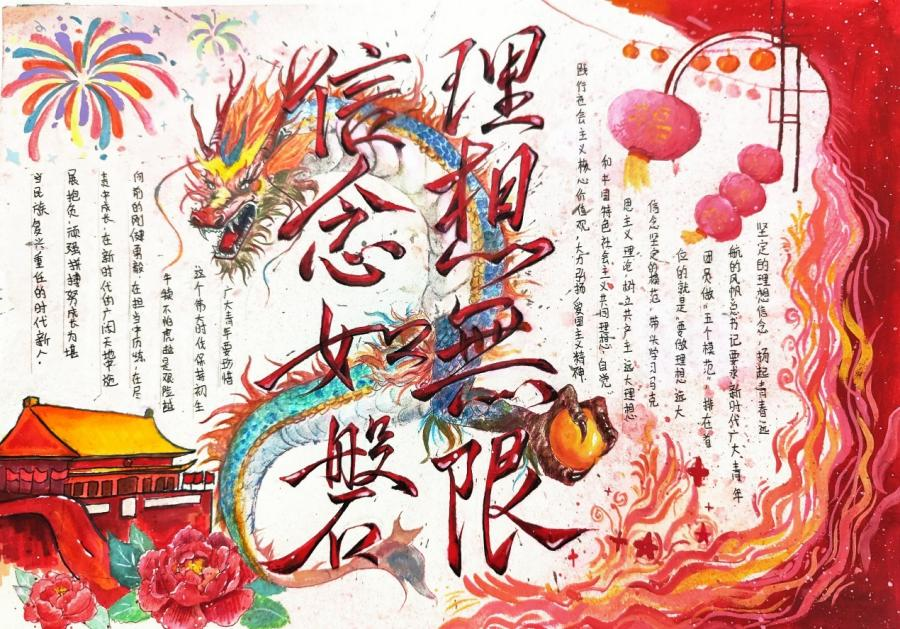 理想無限
信念如磐石
坚定的理想信念，扬起青春远
航的风帆总书记要求新时代广大青年
团员做“五个模范”，排在首
位的就是：要做理想远大
信念坚定的模范，带头学习马克
思主义理论，树立共产主义远大理想
和中国特色社会主义共同理想，自觉
践行社会主义核心价值观，大力弘扬爱国主义精神。
广大青年要珍惜
这个伟大时代，保持初生
牛犊不怕虎，越是艰险越
向前的刚健勇毅，在担当中历练，在尽
责中成长，在新时代的广阔天地中施
展抱负，顽强拼搏，努力成长为堪
当民族复兴重任的时代新人。
福